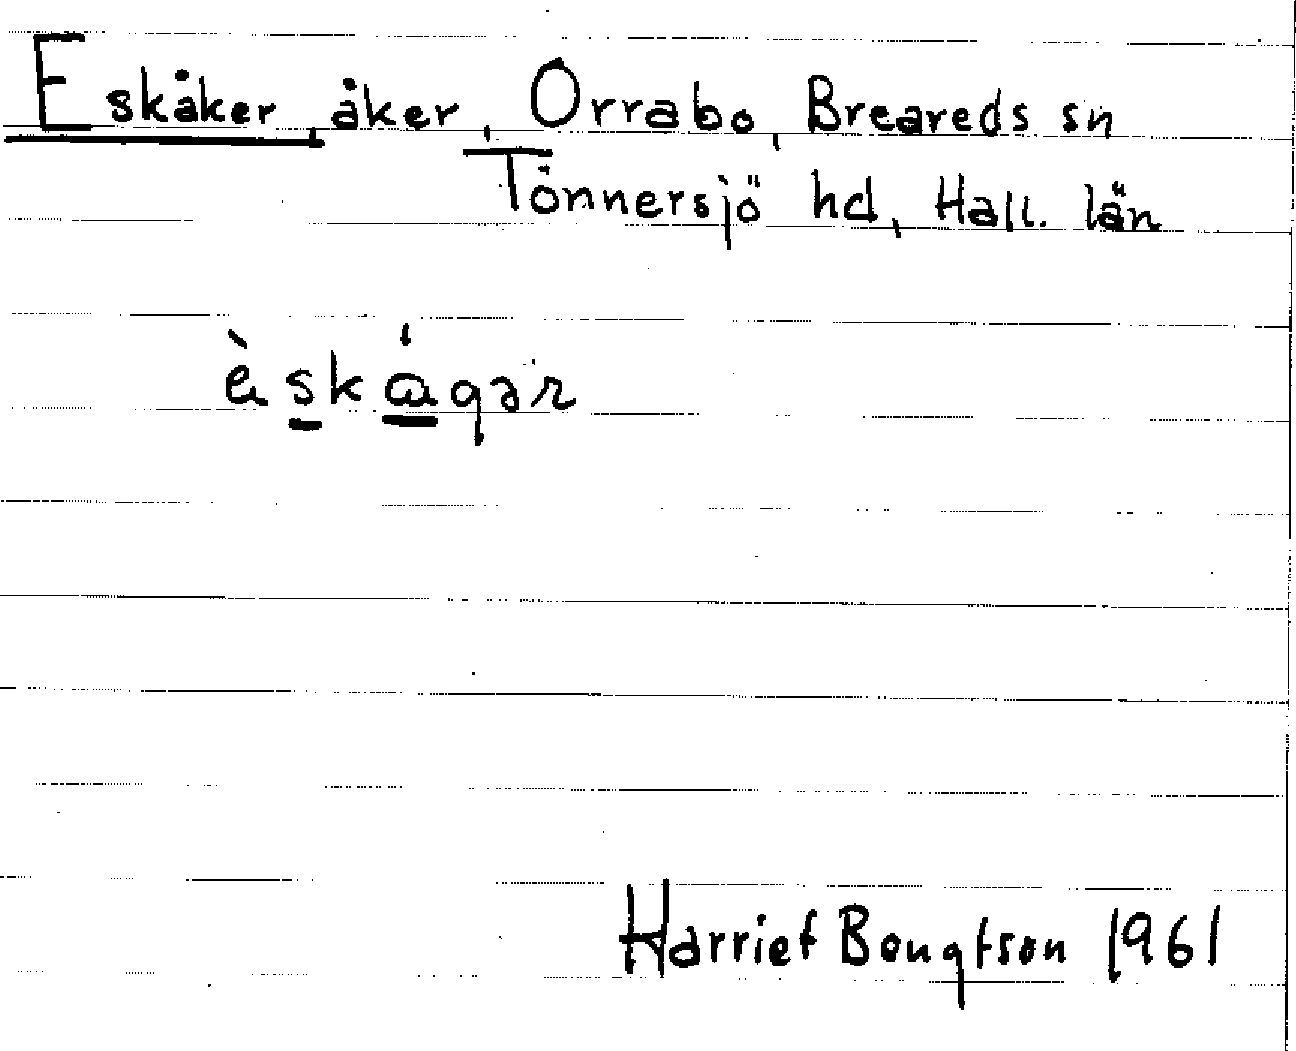 Eskåker, åker, Orrabo, Breareds sn
Tönnersjö hd, Hall. län
èskágər
Harriet Bengtson 1961